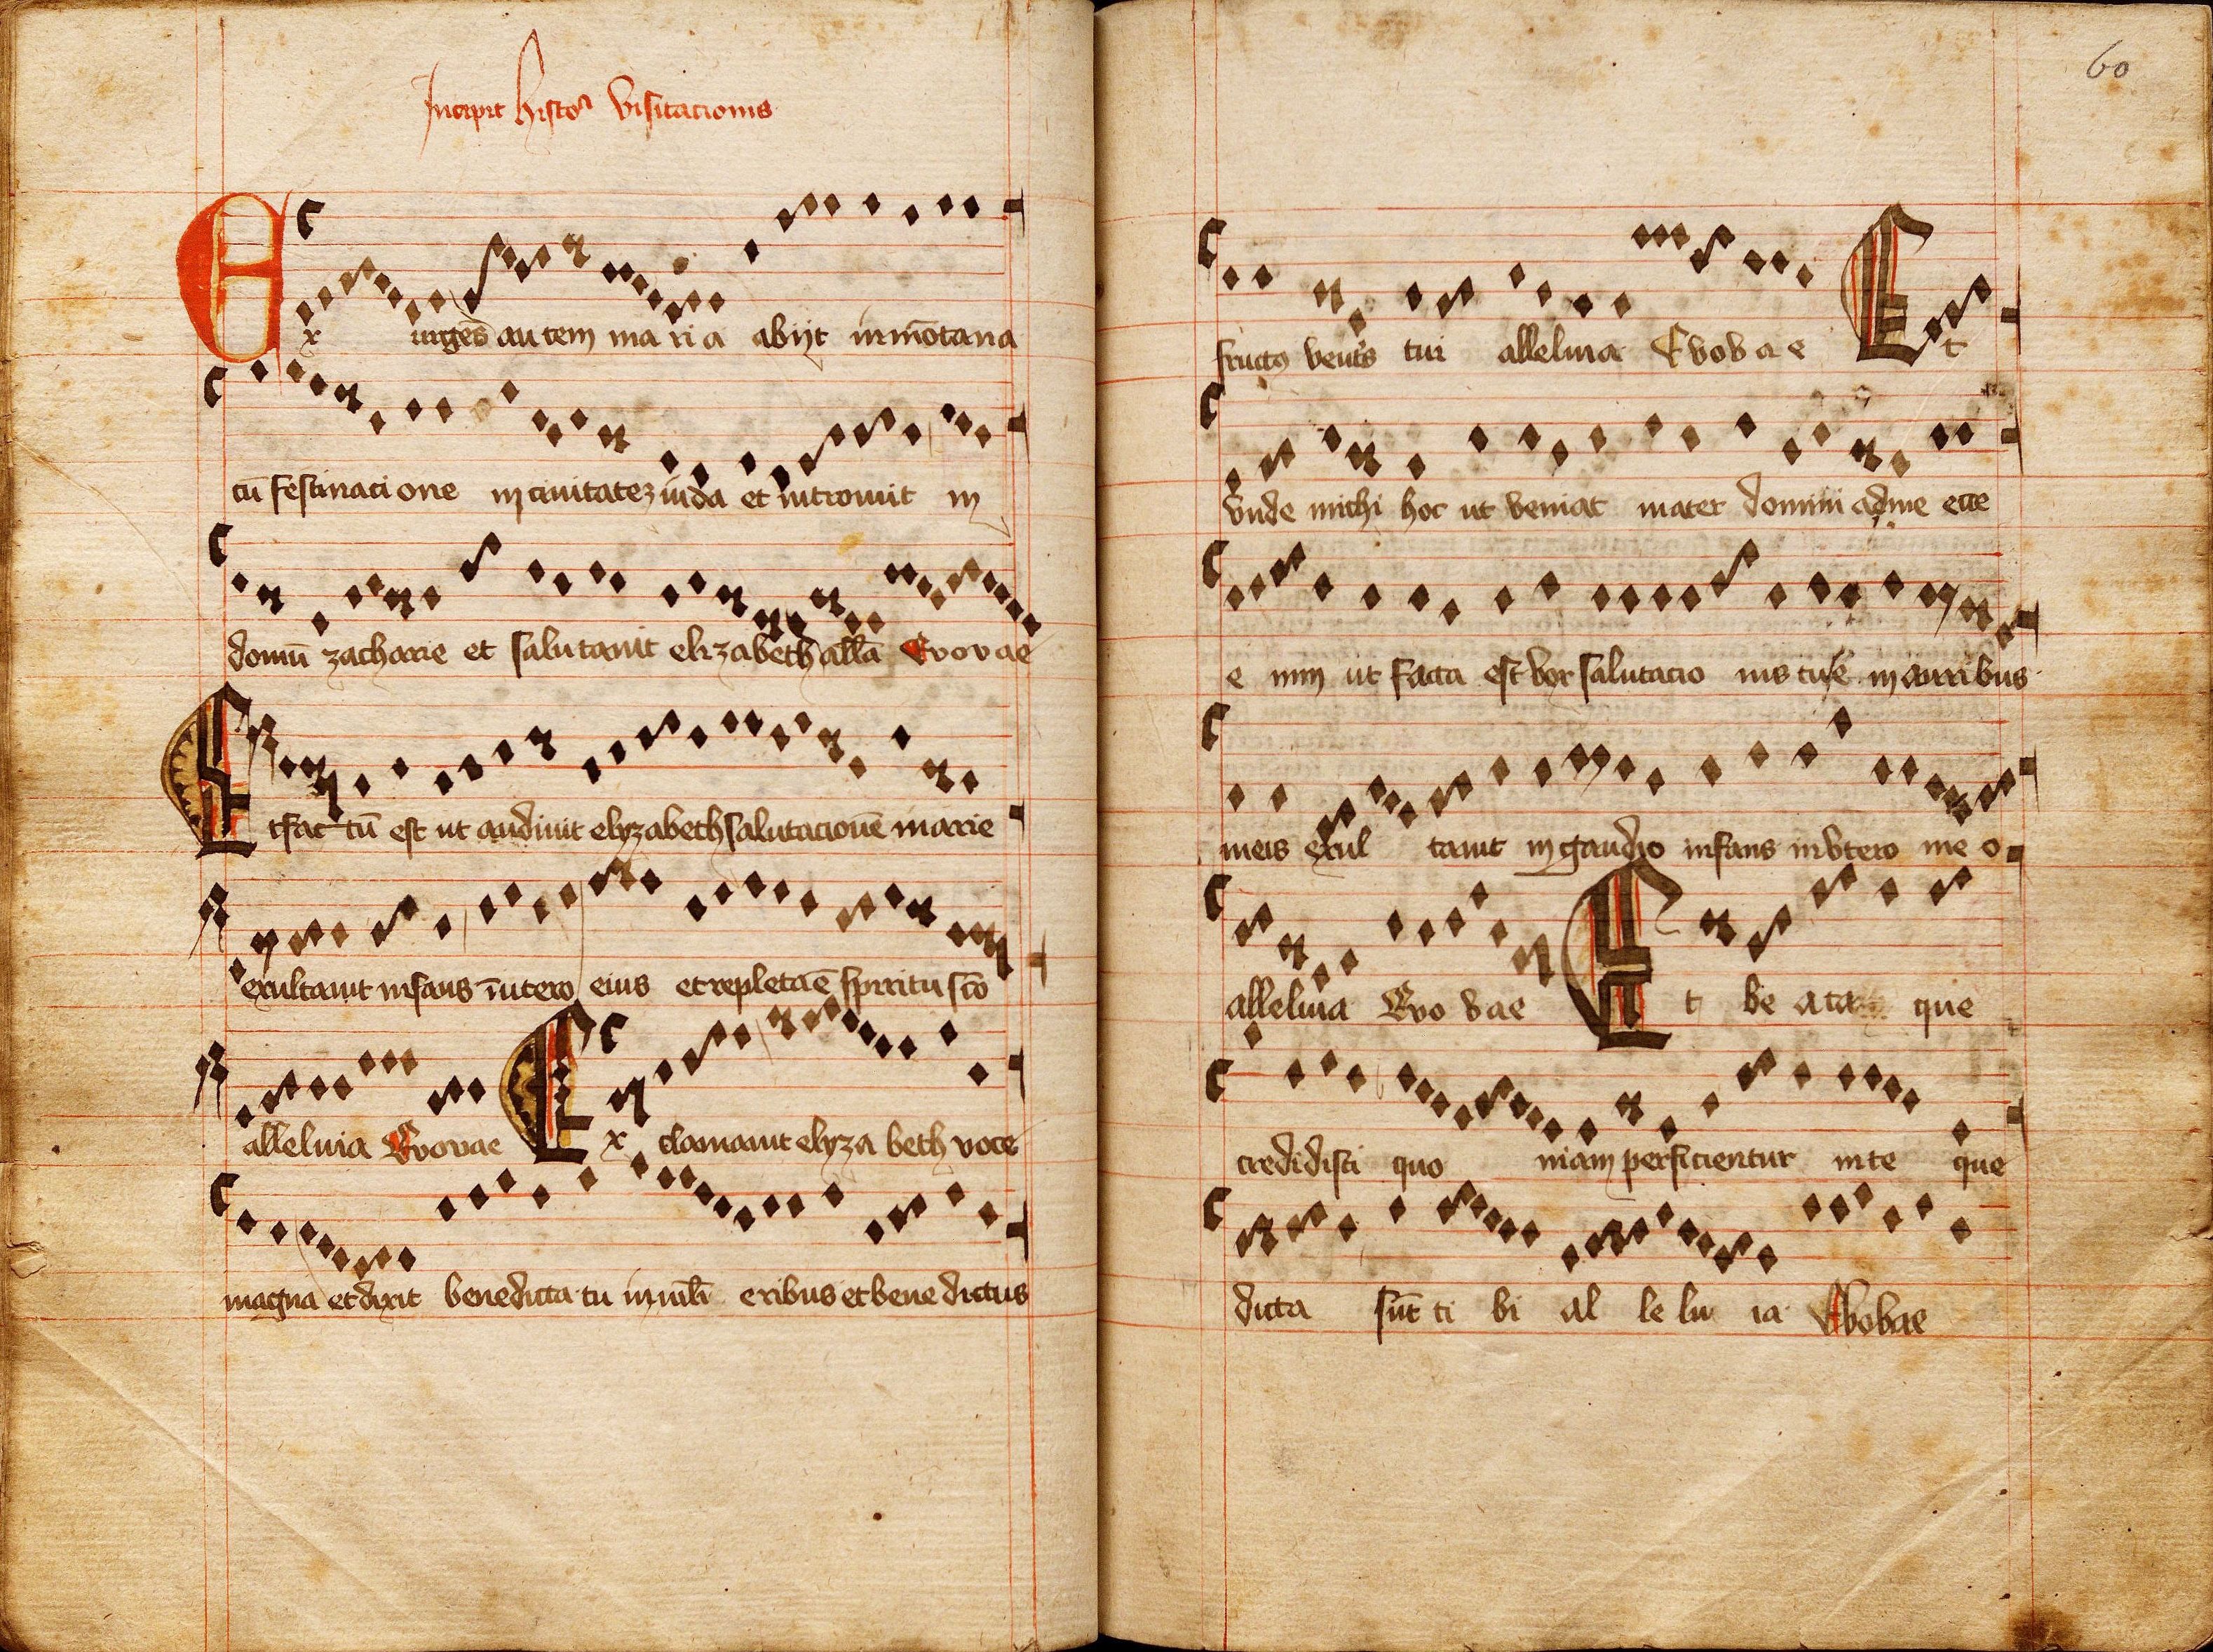 Incipit histor visitacionis
Ex urgēs autem maria abijt in mōtana
cū festinacione in ciuitatez iuda et intrauit in
domū zacharie et salutauit elizabeth allā Evovae
Et factū est ut audiuit elyzabeth salutacionē marie
exultauit infans ī utero eius et repleta ē spiritu scō
alleluia Evovae Ex clamauit elyza beth voce
magna et dixit benedicta tu in mulī eribus et bene dictus
60
fructꝯ ventˢ tui alleluia Evovae Et
vnde michi hoc ut veniat mater domini ad me ecce
e nim ut facta est vox salutacio nis tue in auribus
meis exul tauit in gaudio infans in vtero me o
alleluia Evovae Et be ata que
credidisti quo niam perficientur in te que
dicta sūt ti bi al le lu ia Evovae